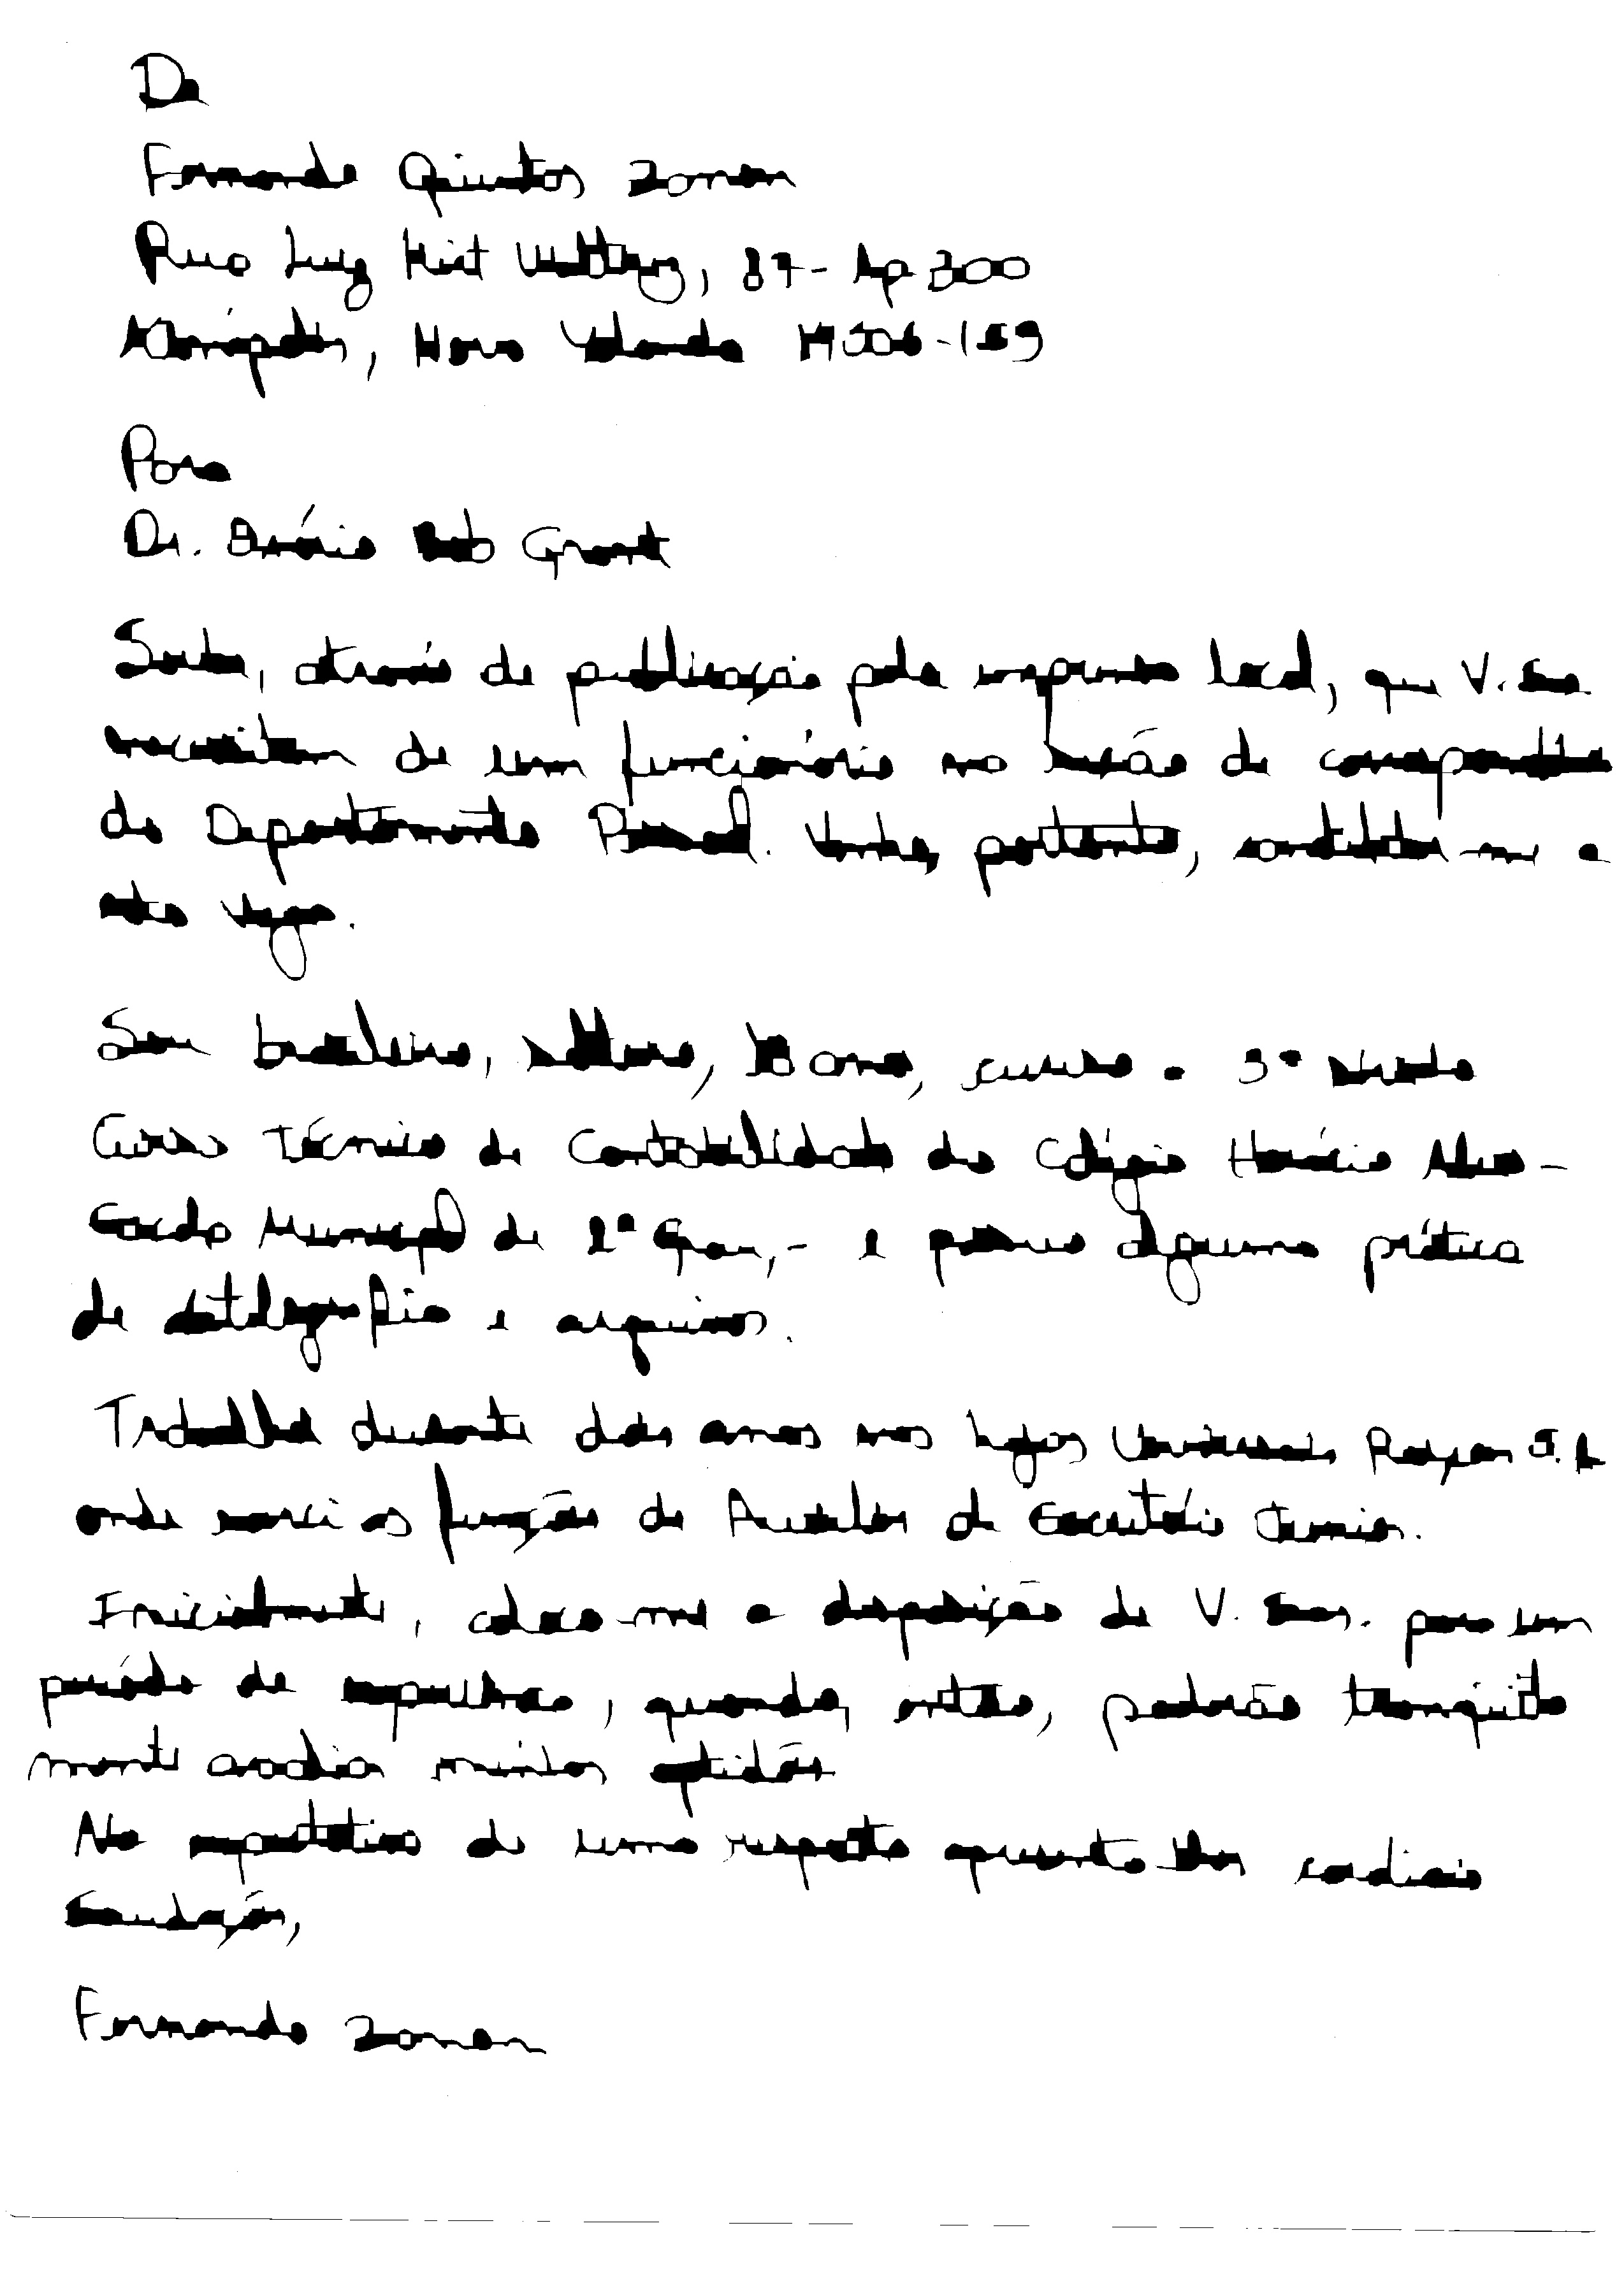 De
Fernando Quintos Zonan
Rua Luiz Kist, 87 - Ap 300
Nova Zelanda
Para
Dr. Grant
Soube, através de publicação pela imprensa local, que V. Sas
necessitam de um funcionário na seção de
do Departamento Pessoal. Venho, portanto, candidatar-me a
esta vaga.
Sou brasileiro, solteiro, 18 anos, curso a 3ª série do
Curso Técnico de Contabilidade do Colégio Horácio Alves -
Escola Municipal de 2º Grau, - e possuo alguma prática
de datilografia e arquivos.
Trabalhei durante dois anos nas Lojas Universais S.A
onde exerci as funções de Auxiliar de Escritório Junior.
Inicialmente, coloco-me a disposição de V. Sas. para um
período de experiência, quando, então, poderão tranquila
mente avaliar minhas aptidões
Na expectativa de uma resposta apresento-lhes cordiais
Saudações,
Fernando Zonan